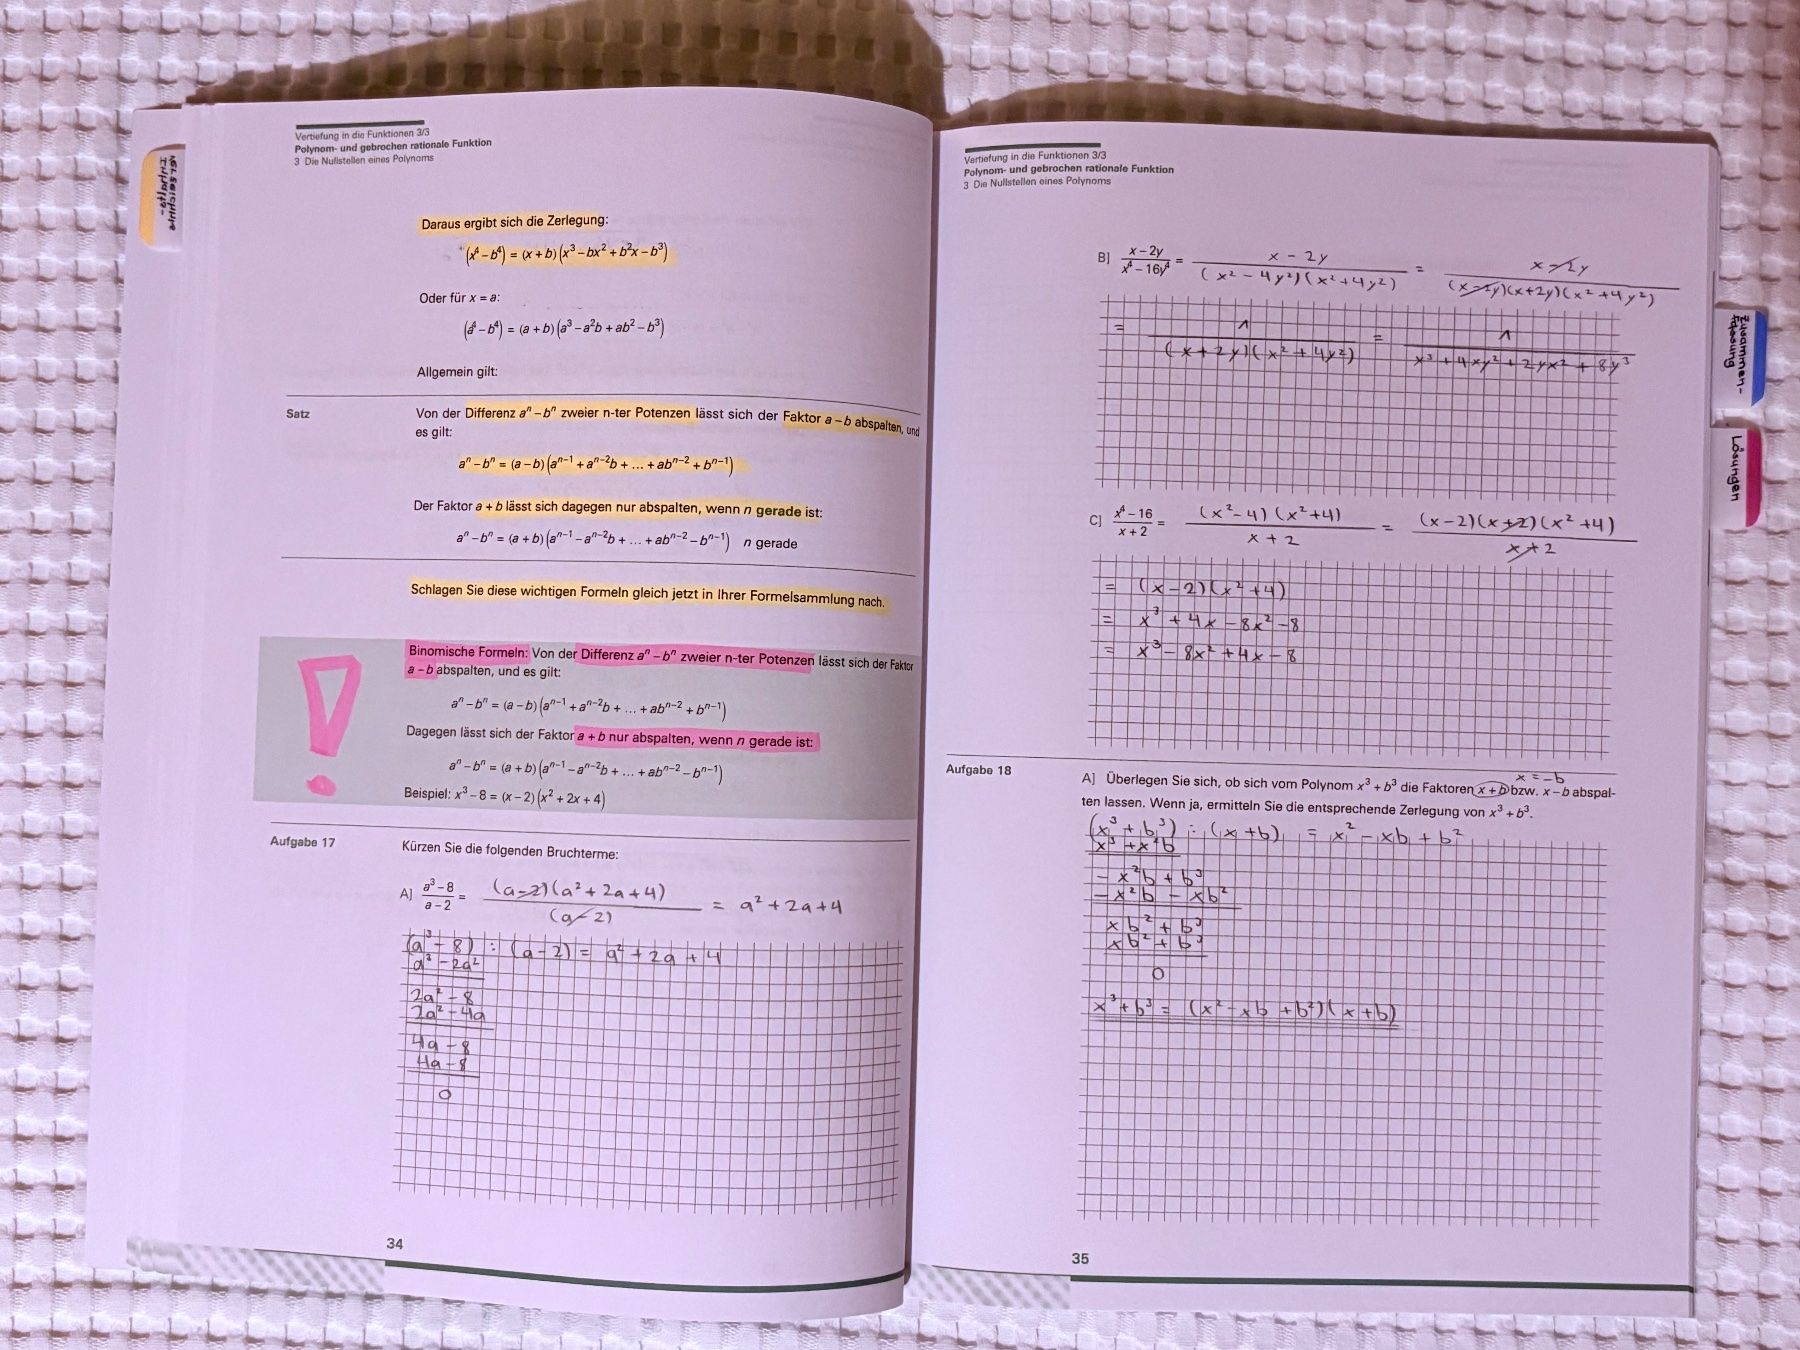 Inhalts-
verzeichnis
Vertiefung in die Funktionen 3/3
Polynom- und gebrochen rationale Funktion
3 Die Nullstellen eines Polynoms
Daraus ergibt sich die Zerlegung:
(x⁴ – b⁴) = (x + b)(x³ – bx² + b²x – b³)
Oder für x = a:
(a⁴ – b⁴) = (a + b)(a³ – a²b + ab² – b³)
Allgemein gilt:
Satz
Von der Differenz aⁿ – bⁿ zweier n-ter Potenzen lässt sich der Faktor a – b abspalten, und
es gilt:
aⁿ – bⁿ = (a – b)(aⁿ⁻¹ + aⁿ⁻²b + ... + abⁿ⁻² + bⁿ⁻¹)
Der Faktor a + b lässt sich dagegen nur abspalten, wenn n gerade ist:
aⁿ – bⁿ = (a + b)(aⁿ⁻¹ – aⁿ⁻²b + ... + abⁿ⁻² – bⁿ⁻¹) n gerade
Schlagen Sie diese wichtigen Formeln gleich jetzt in Ihrer Formelsammlung nach.
!
Binomische Formeln: Von der Differenz aⁿ – bⁿ zweier n-ter Potenzen lässt sich der Faktor
a – b abspalten, und es gilt:
aⁿ – bⁿ = (a – b)(aⁿ⁻¹ + aⁿ⁻²b + ... + abⁿ⁻² + bⁿ⁻¹)
Dagegen lässt sich der Faktor a + b nur abspalten, wenn n gerade ist:
aⁿ – bⁿ = (a + b)(aⁿ⁻¹ – aⁿ⁻²b + ... + abⁿ⁻² – bⁿ⁻¹)
Beispiel: x³ – 8 = (x – 2)(x² + 2x + 4)
Aufgabe 17
Kürzen Sie die folgenden Bruchterme:
A] (a³ – 8)/(a – 2) = (a-2)(a² + 2a + 4)/(a-2) = a² + 2a + 4
(a³ - 8) : (a - 2) = a² + 2a + 4
a³ - 2a²
2a² - 8
2a² - 4a
4a - 8
4a - 8
0
34
Vertiefung in die Funktionen 3/3
Polynom- und gebrochen rationale Funktion
3 Die Nullstellen eines Polynoms
B] (x – 2y)/(x⁴ – 16y⁴) = (x - 2y)/((x² - 4y²)(x² + 4y²)) = (x-2y)/((x-2y)(x+2y)(x² + 4y²))
= 1/((x + 2y)(x² + 4y²)) = 1/(x³ + 4xy² + 2yx² + 8y³)
C] (x⁴ – 16)/(x + 2) = (x² - 4)(x² + 4)/(x + 2) = (x - 2)(x + 2)(x² + 4)/(x + 2)
= (x - 2)(x² + 4)
= x³ + 4x - 8x² - 8
= x³ - 8x² + 4x - 8
Aufgabe 18
x = -b
A] Überlegen Sie sich, ob sich vom Polynom x³ + b³ die Faktoren x + b bzw. x – b abspal-
ten lassen. Wenn ja, ermitteln Sie die entsprechende Zerlegung von x³ + b³.
(x³ + b³) : (x + b) = x² - xb + b²
x³ + x²b
- x²b + b³
- x²b - xb²
xb² + b³
xb² + b³
0
x³ + b³ = (x² - xb + b²)(x + b)
35
Zusammen-
fassung
Lösungen